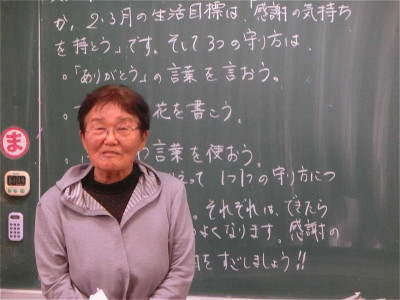 が、2・3月の生活目標は、「感謝の気持ち
を持とう」です。そして3つの守り方は、
○「ありがとう」の言葉を言おう。
花を書こう。
言葉を使おう。
って 1つ1つの守り方につ
。それぞれは、できたら
よくなります。感謝の
をすごしましょう!!
ま